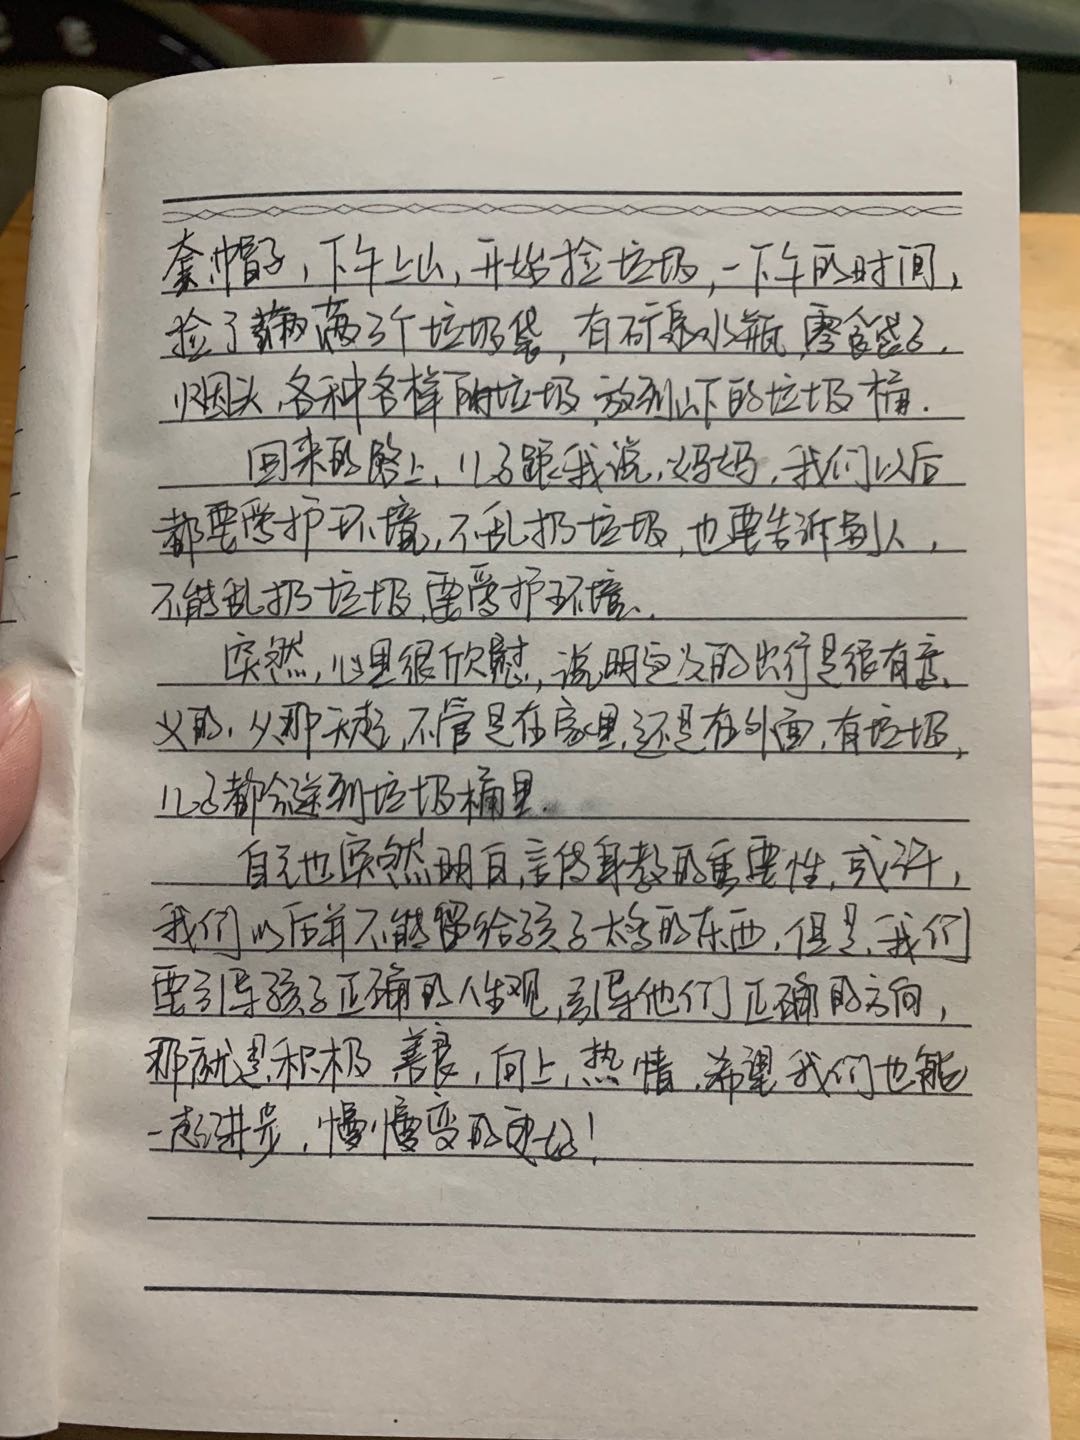 套帽子，下午上山，开始捡垃圾，一下午的时间，
捡了满满3个垃圾袋，有矿泉水瓶，零食袋子，
烟头，各种各样的垃圾，放到山下的垃圾桶．
回来的路上，儿子跟我说，妈妈，我们以后
都要爱护环境，不乱扔垃圾，也要告诉别人，
不能乱扔垃圾，要爱护环境．
突然，心里很欣慰，说明这次的出行是很有意
义的，从那天起，不管是在家里，还是在外面，有垃圾，
儿子都会送到垃圾桶里．
自己也突然明白，言传身教的重要性，或许，
我们以后并不能留给孩子太多的东西，但是，我们
要引导孩子正确的人生观，引导他们正确的方向，
那就是积极 善良，向上，热情，希望我们也能
一起进步，慢慢变的更好！